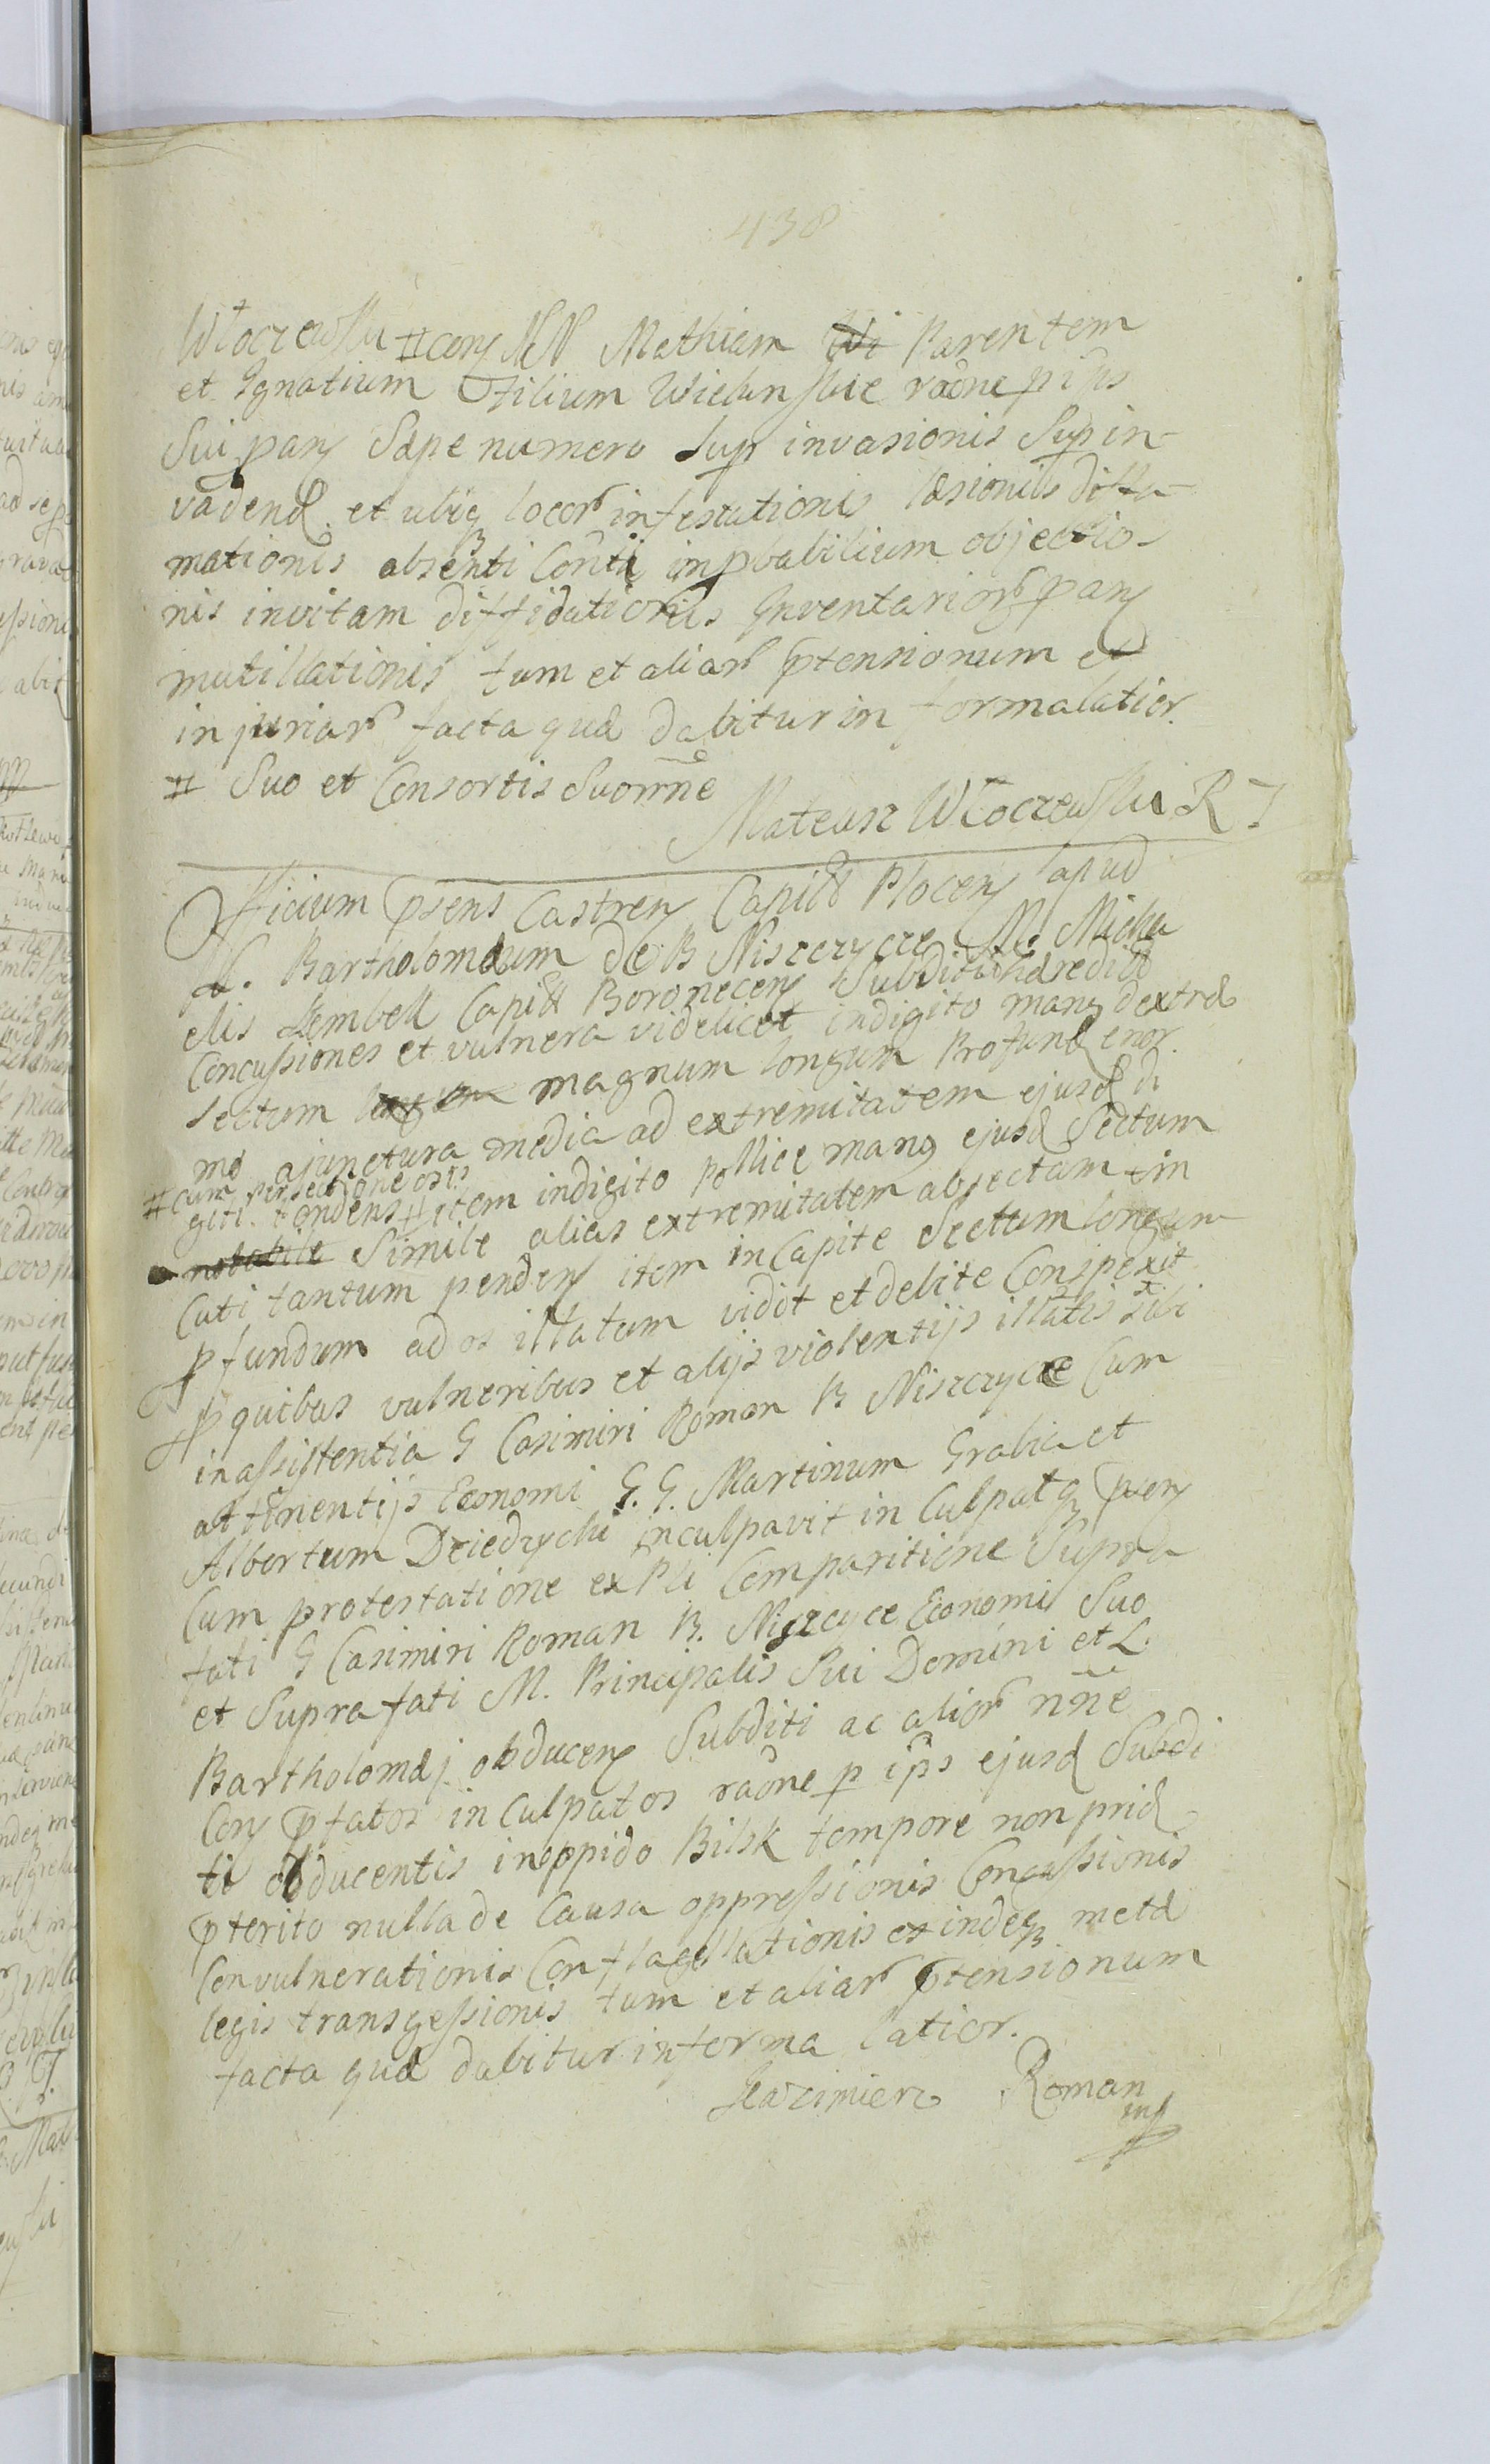 438
Włoczewski # con NN Mathiam Wi Parentem
et Ignatium Filium Wichinskie raõne p ips
Sui pan Sæpe numero Sup invasionis Sup in-
vadend et ubiq locor infestationis læsionis diffa-
mationis absenti Conti improbabilium objectio-
nis in vitam diffidationis Inventarior pan
mutillationis tum et aliar ptensionum et
injuriar facta quæ dabitur in forma latior.
# Suo et Consortis Suo nñe
Mateusz Włoczewski R
Officium psens Castren Capitt Plocen apud
L. Bartholomæum de B Niszczyce M Micha
elis Lembell Capitt Boronecen Subditum hæreditt
Concussiones et vulnera videlicet in digito man dextræ
Sectum magnum longum Profund enor.
me a junctura media ad extremitatem ejusd di
# cum persectione ossis
giti tendens # item in digito pollice man ejusd Sectum
notabile Simile alias extremitatem absectam in
Cuti tantum penden item in Capite Sectum longum
pfundum ad os illatum vidit et debite Conspexit
p quibus vulneribus et alijs violentijs illatis sibi
in assistentia G Casimiri Roman B Niszczyce Cum
attinentijs Economi G. G. Martinum Grabia et
Albertum Dziedzychi inculpavit inculpatq psen
Cum protestatione ex Pli Comparitione Supra
fati G Casimiri Roman B. Niszczyce Economi Suo
et Supra fati M. Principalis Sui Domini et L.
Bartholomæj obducen Subditi ac alior nñe
Con ptatos inculpatos raõne p ips ejusd Subdi
ti obducentis in oppido Bilsk tempore non prid
pterito nulla de Causa oppressionis Concussionis
Convulnerationis Conflagellationis et indeq metæ
legis transgessionis tum et aliar ptensionum
facta quæ dabitur in forma latior.
Kazimierz Roman